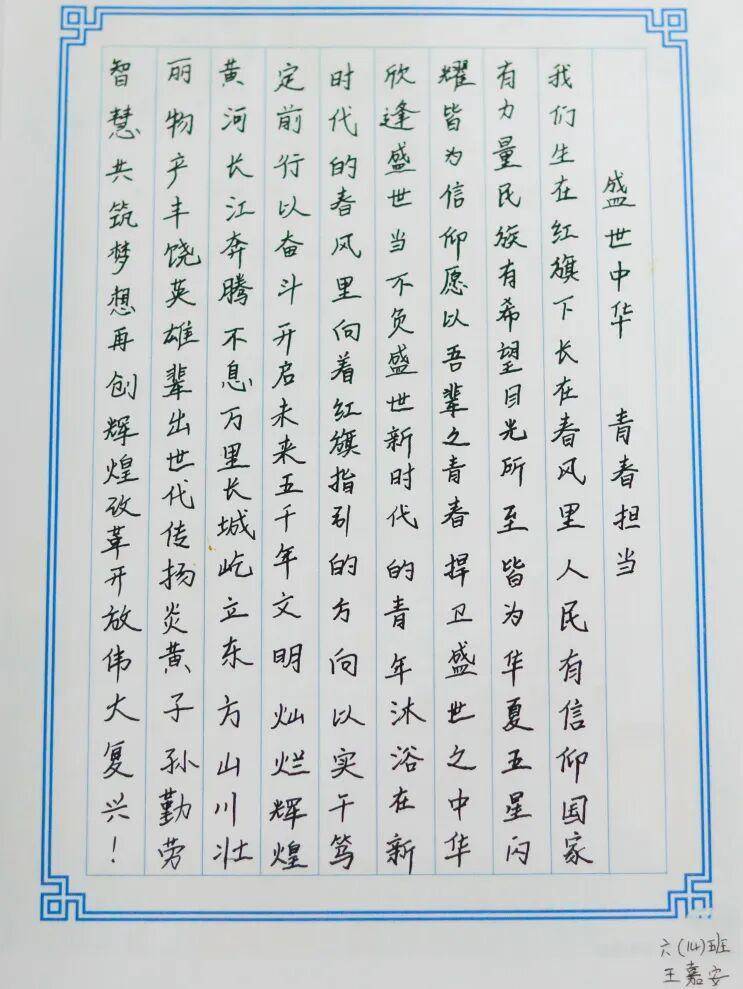 盛世中华 青春担当
我们生在红旗下长在春风里人民有信仰国家
有力量民族有希望目光所至皆为华夏五星闪
耀皆为信仰愿以吾辈之青春捍卫盛世之中华
欣逢盛世当不负盛世新时代的青年沐浴在新
时代的春风里向着红旗指引的方向以实干笃
定前行以奋斗开启未来五千年文明灿烂辉煌
黄河长江奔腾不息万里长城屹立东方山川壮
丽物产丰饶英雄辈出世代传扬炎黄子孙勤劳
智慧共筑梦想再创辉煌改革开放伟大复兴！
六(14)班
王嘉安